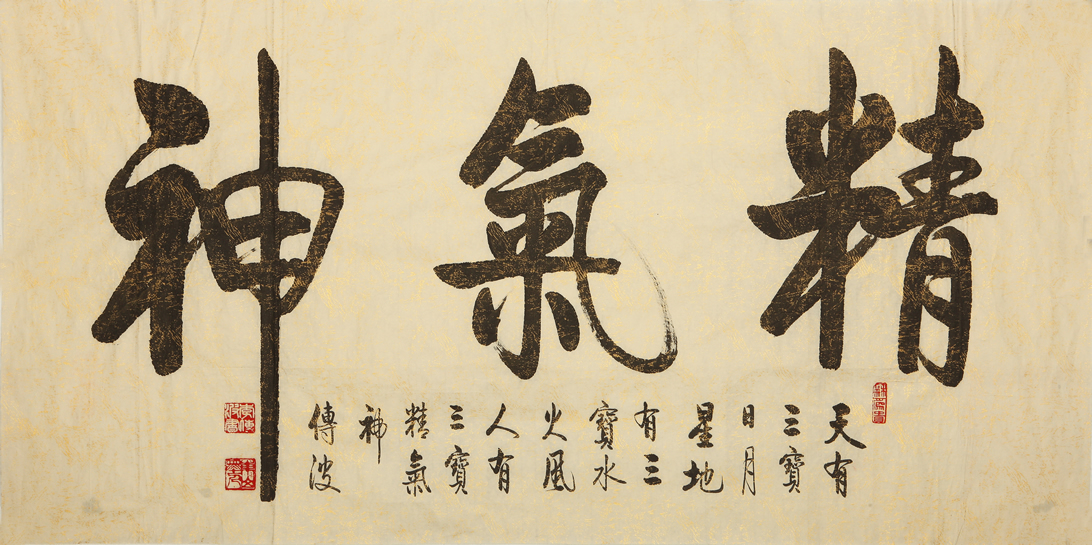 精氣神
天有
三寶
日月
星地
有三
寶水
火風
人有
三寶
精氣
神
傳波